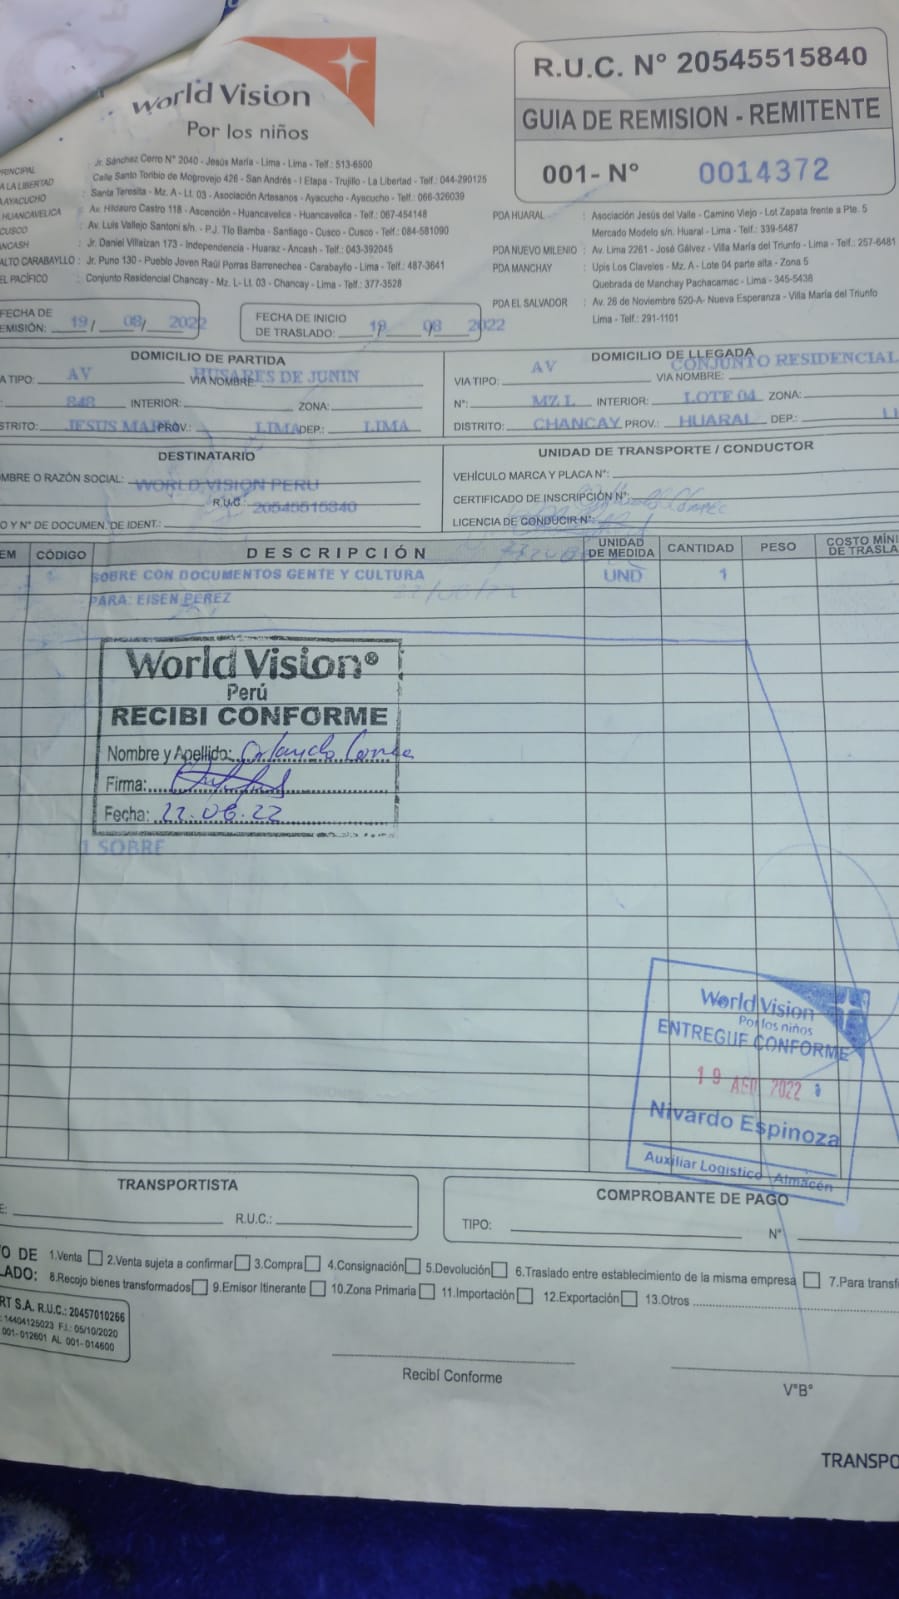 World Vision
Por los niños
R.U.C. N° 20545515840
GUIA DE REMISION - REMITENTE
001- N° 0014372
RINCIPAL : Jr. Sánchez Cerro N° 2040 - Jesús María - Lima - Lima - Telf.: 513-6500
A LA LIBERTAD Calle Santo Toribio de Mogrovejo 426 - San Andrés - I Etapa - Trujillo - La Libertad - Telf.: 044-290125
AYACUCHO : Santa Teresita - Mz. A - Lt. 03 - Asociación Artesanos - Ayacucho - Ayacucho - Telf.: 066-326039
HUANCAVELICA : Av. Hildauro Castro 118 - Ascención - Huancavelica - Huancavelica - Telf.: 067-454148
CUSCO : Av. Luis Vallejo Santoni s/n. - P.J. Tio Bamba - Santiago - Cusco - Cusco - Telf.: 084-581090
ANCASH : Jr. Daniel Villaizan 173 - Independencia - Huaraz - Ancash - Telf.: 043-392045
ALTO CARABAYLLO : Jr. Puno 130 - Pueblo Joven Raúl Porras Barrenechea - Carabayllo - Lima - Telf.: 487-3641
EL PACÍFICO : Conjunto Residencial Chancay - Mz. L- Lt. 03 - Chancay - Lima - Telf.: 377-3528
PDA HUARAL : Asociación Jesús del Valle - Camino Viejo - Lot Zapata frente a Pte. 5
Mercado Modelo s/n. Huaral - Lima - Telf.: 339-5487
PDA NUEVO MILENIO : Av. Lima 2261 - José Gálvez - Villa María del Triunfo - Lima - Telf.: 257-6481
PDA MANCHAY : Upis Los Claveles - Mz. A - Lote 04 parte alta - Zona 5
Quebrada de Manchay Pachacamac - Lima - 345-5438
PDA EL SALVADOR : Av. 26 de Noviembre 520-A- Nueva Esperanza - Villa María del Triunfo
Lima - Telf.: 291-1101
FECHA DE
EMISIÓN: 19/ 08/ 2022
FECHA DE INICIO
DE TRASLADO: 19 08 2022
DOMICILIO DE PARTIDA
A TIPO: AV VIA NOMBRE: HUSARES DE JUNIN
848 INTERIOR: ZONA:
STRITO: JESUS MA PROV.: LIMA DEP.: LIMA
DOMICILIO DE LLEGADA
VIA TIPO: AV VIA NOMBRE: CONJUNTO RESIDENCIAL
N°: MZ L INTERIOR: LOTE 04 ZONA:
DISTRITO: CHANCAY PROV.: HUARAL DEP.: LI
DESTINATARIO
MBRE O RAZÓN SOCIAL: WORLD VISION PERU
R.U.C.: 20545515840
O Y N° DE DOCUMEN. DE IDENT.:
UNIDAD DE TRANSPORTE / CONDUCTOR
VEHÍCULO MARCA Y PLACA N°:
CERTIFICADO DE INSCRIPCIÓN N°:
LICENCIA DE CONDUCIR N°:
EM CÓDIGO DESCRIPCIÓN UNIDAD DE MEDIDA CANTIDAD PESO COSTO MÍNI DE TRASLA
1 SOBRE CON DOCUMENTOS GENTE Y CULTURA UND 1
PARA: EISEN PEREZ
World Vision®
Perú
RECIBI CONFORME
Nombre y Apellido: Orlando
Firma:
Fecha: 22.08.22
1 SOBRE
World Vision
Por los niños
ENTREGUE CONFORME
19 AGO. 2022
Nivardo Espinoza
Auxiliar Logistico Almacén
TRANSPORTISTA
E: R.U.C.:
COMPROBANTE DE PAGO
TIPO: N°
O DE 1.Venta 2.Venta sujeta a confirmar 3.Compra 4.Consignación 5.Devolución 6.Traslado entre establecimiento de la misma empresa 7.Para transf
LADO: 8.Recojo bienes transformados 9.Emisor Itinerante 10.Zona Primaria 11.Importación 12.Exportación 13.Otros
RT S.A. R.U.C.: 20457010266
: 14404125023 F.I.: 05/10/2020
001-012601 AL 001-014600
Recibí Conforme
V°B°
TRANSPO